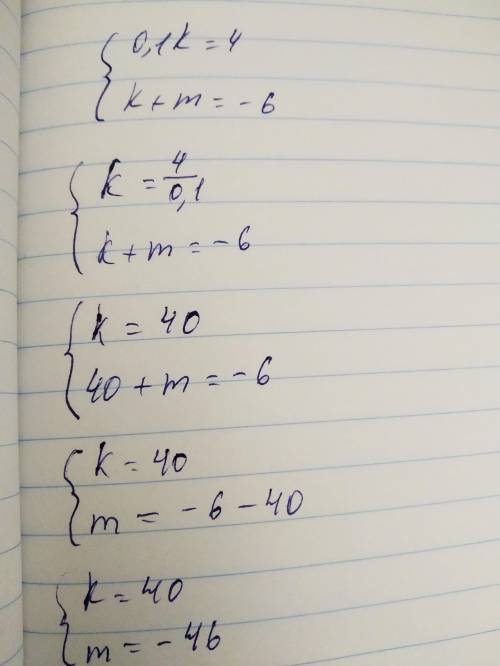 0,1k = 4
k + m = -6
k = 4/0,1
k + m = -6
k = 40
40 + m = -6
k = 40
m = -6 - 40
k = 40
m = -46